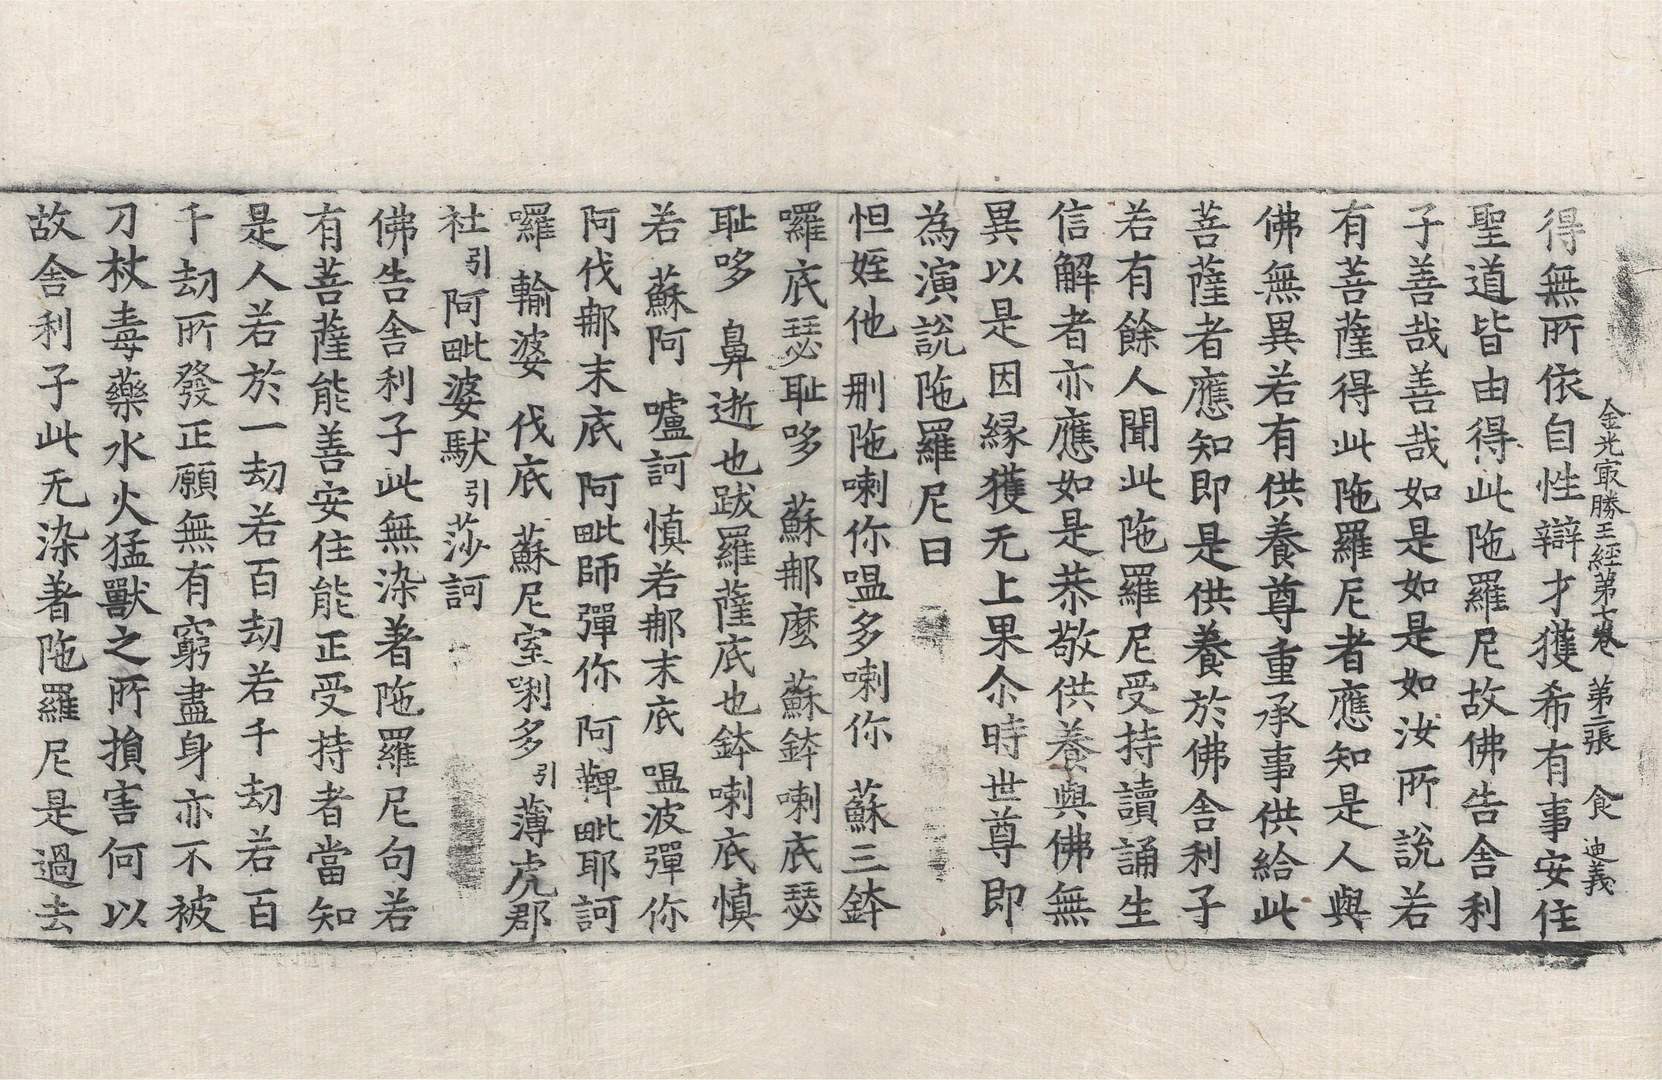 金光㝡勝王經第七卷 第二張 食 迪義
得無所依自性辯才獲希有事安住
聖道皆由得此陁羅尼故佛告舍利
子善哉善哉如是如是如汝所說若
有菩薩得此陁羅尼者應知是人與
佛無異若有供養尊重承事供給此
菩薩者應知即是供養於佛舍利子
若有餘人聞此陁羅尼受持讀誦生
信解者亦應如是恭敬供養與佛無
異以是因緣獲无上果尒時世尊即
為演說陁羅尼曰
怛姪他 刪陁喇你嗢多喇你 蘇三鉢
囉底瑟耻哆 蘇那麽 蘇鉢喇底瑟
耻哆 鼻逝也跋羅薩底也鉢喇底慎
若 蘇阿 嚧訶 慎若那末底 嗢波彈你
阿伐那末底 阿毗師彈你 阿鞞毗耶訶
囉 輸婆 伐底 蘇尼室唎多引薄虎郡
社引阿毗婆馱引莎訶
佛告舍利子此無染著陁羅尼句若
有菩薩能善安住能正受持者當知
是人若於一劫若百劫若千劫若百
千劫所發正願無有窮盡身亦不被
刀杖毒藥水火猛獸之所損害何以
故舍利子此无染著陁羅尼是過去